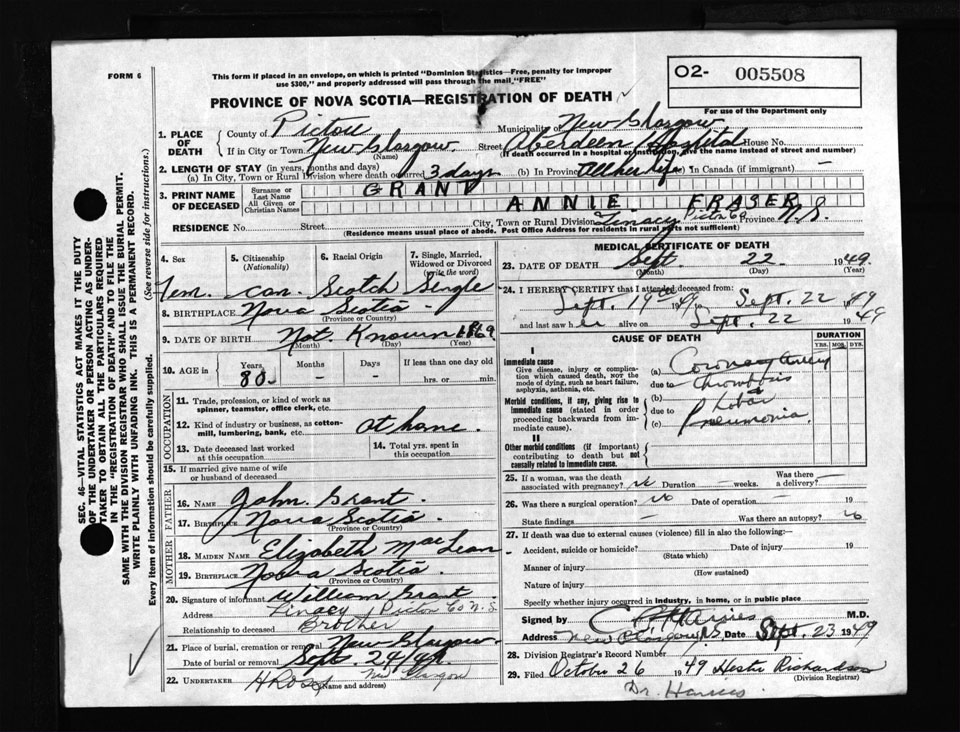 FORM 6
This form if placed in an envelope, on which is printed "Dominion Statistics—Free, penalty for improper
use $300," and properly addressed will pass through the mail "FREE"
O2- 005508
For use of the Department only
PROVINCE OF NOVA SCOTIA—REGISTRATION OF DEATH
1. PLACE OF DEATH
County of Pictou Municipality of New Glasgow
If in City or Town New Glasgow (Name) Street Aberdeen Hospital House No.
(If death occurred in a hospital or institution, give the name instead of street and number)
2. LENGTH OF STAY (in years, months and days)
(a) In City, Town or Rural Division where death occurred 3 days (b) In Province All her life (c) In Canada (if immigrant) —
3. PRINT NAME OF DECEASED
Surname or Last Name GRANT
All Given or Christian Names ANNIE FRASER
RESIDENCE No. Street City, Town or Rural Division Linacy Pictou Co Province N.S.
(Residence means usual place of abode. Post Office Address for residents in rural parts not sufficient)
4. Sex Fem.
5. Citizenship (Nationality) Can.
6. Racial Origin Scotch
7. Single, Married, Widowed or Divorced (write the word) Single
8. BIRTHPLACE Nova Scotia
(Province or Country)
9. DATE OF BIRTH Not Known 1869
(Month) (Day) (Year)
10. AGE in Years 80 Months – Days – If less than one day old hrs. or min.
OCCUPATION
11. Trade, profession, or kind of work as spinner, teamster, office clerk, etc.
12. Kind of industry or business, as cotton-mill, lumbering, bank, etc. at home
13. Date deceased last worked at this occupation
14. Total yrs. spent in this occupation
15. If married give name of wife or husband of deceased
FATHER
16. NAME John Grant
17. BIRTHPLACE Nova Scotia
(Province or Country)
MOTHER
18. MAIDEN NAME Elizabeth MacLean
19. BIRTHPLACE Nova Scotia
(Province or Country)
20. Signature of informant William Grant
Address Linacy Pictou Co N.S.
Relationship to deceased Brother
21. Place of burial, cremation or removal New Glasgow
Date of burial or removal Sept. 24/49
22. UNDERTAKER H Ross New Glasgow
(Name and address)
MEDICAL CERTIFICATE OF DEATH
23. DATE OF DEATH Sept. 22 1949
(Month) (Day) (Year)
24. I HEREBY CERTIFY that I attended deceased from:
Sept. 19 49 to Sept. 22 1949
and last saw her alive on Sept. 22 1949
CAUSE OF DEATH
DURATION
YRS. MOS. DYS.
I
Immediate cause
Give disease, injury or complication which caused death, NOT the mode of dying, such as heart failure, asphyxia, asthenia, etc.
Morbid conditions, if any, giving rise to immediate cause (stated in order proceeding backwards from immediate cause).
II
Other morbid conditions (if important) contributing to death but not causally related to immediate cause.
(a) Coronary Artery
due to Thrombosis
(b) Lobar
due to
(c) Pneumonia
25. If a woman, was the death associated with pregnancy? no Duration – weeks. Was there a delivery? –
26. Was there a surgical operation? no Date of operation – 19
State findings – Was there an autopsy? no
27. If death was due to external causes (violence) fill in also the following:—
Accident, suicide or homicide? Date of injury 19
(State which)
Manner of injury
(How sustained)
Nature of injury
Specify whether injury occurred in industry, in home, or in public place
Signed by M.D.
Address New Glasgow N.S. Date Sept. 23 1949
28. Division Registrar's Record Number
29. Filed October 26 1949 Hester Richardson
(Division Registrar)
SEC. 46—VITAL STATISTICS ACT MAKES IT THE DUTY
OF THE UNDERTAKER OR PERSON ACTING AS UNDER-
TAKER TO OBTAIN ALL THE PARTICULARS REQUIRED
IN THE "REGISTRATION OF DEATH" AND TO FILE THE
SAME WITH THE DIVISION REGISTRAR WHO SHALL ISSUE THE BURIAL PERMIT.
WRITE PLAINLY WITH UNFADING INK. THIS IS A PERMANENT RECORD.
Every item of information should be carefully supplied. (See reverse side for instructions.)